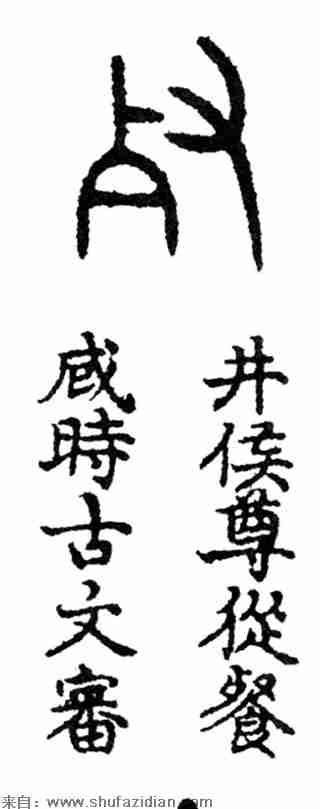 井侯尊從餐
咸時古文審
来自：www.shufazidian.com